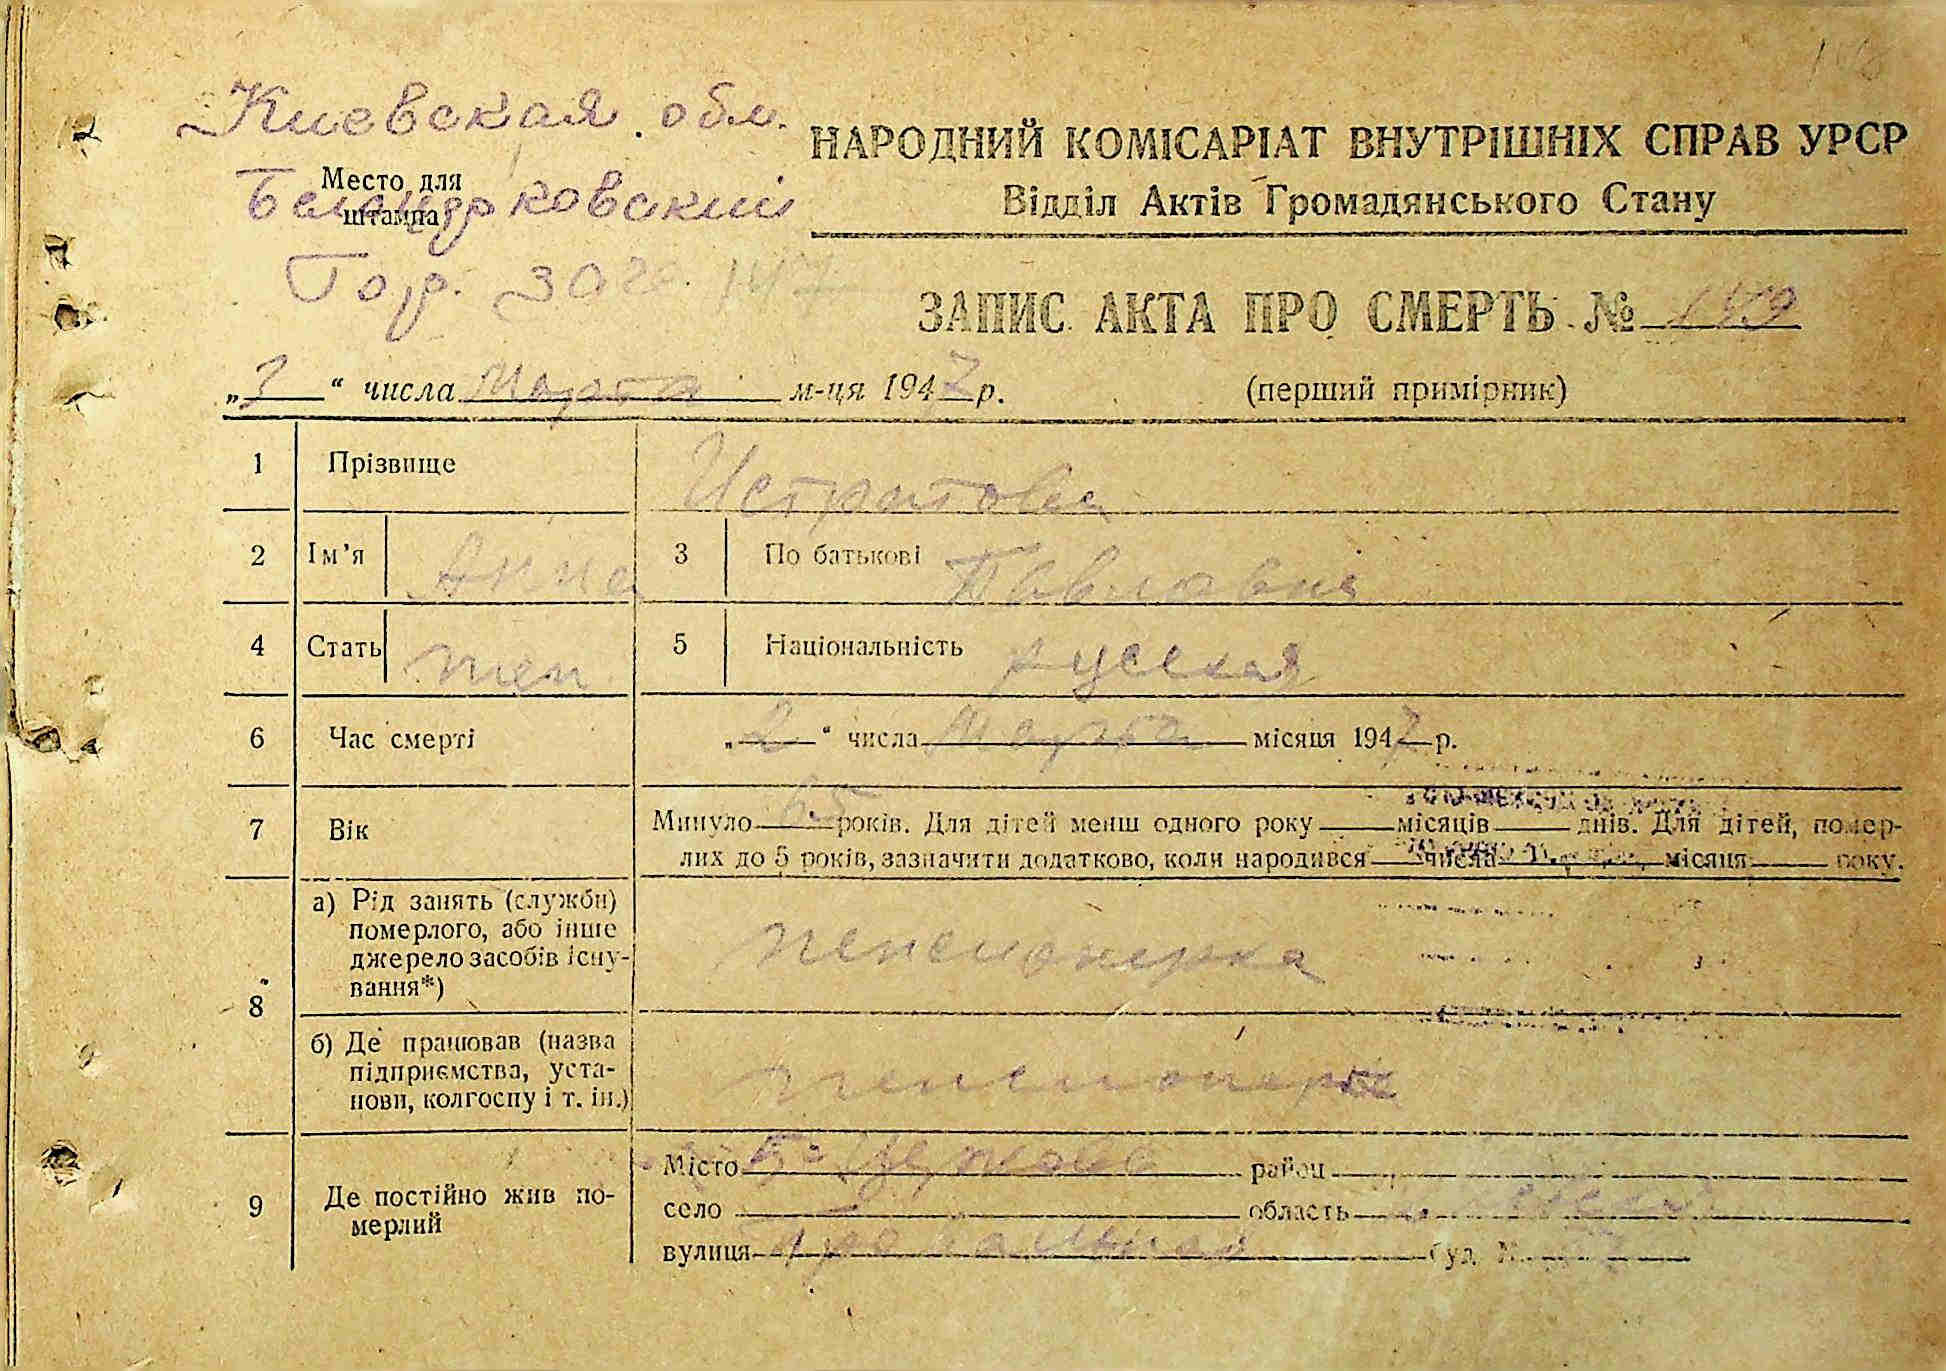 Киевская обл.
Место для
штампа
Белоцерковский
Гор. ЗАГС
НАРОДНИЙ КОМІСАРІАТ ВНУТРІШНІХ СПРАВ УРСР
Відділ Актів Громадянського Стану
ЗАПИС АКТА ПРО СМЕРТЬ №
„3“ числа Марта м-ця 1947 р. (перший примірник)
1 Прізвище
2 Ім’я Анна 3 По батькові Павловна
4 Стать жен 5 Національність русская
6 Час смерті „2“ числа Марта місяця 1947 р.
7 Вік Минуло 65 років. Для дітей менш одного року місяців днів. Для дітей, помер-
лих до 5 років, зазначити додатково, коли народився числа місяця року.
8 а) Рід занять (служби)
померлого, або інше
джерело засобів існу-
вання*) пенсионерка
б) Де працював (назва
підприємства, уста-
нови, колгоспу і т. ін.) пенсионерка
9 Де постійно жив по-
мерлий
Місто Б-Церковь район
село область
вулиця буд. №